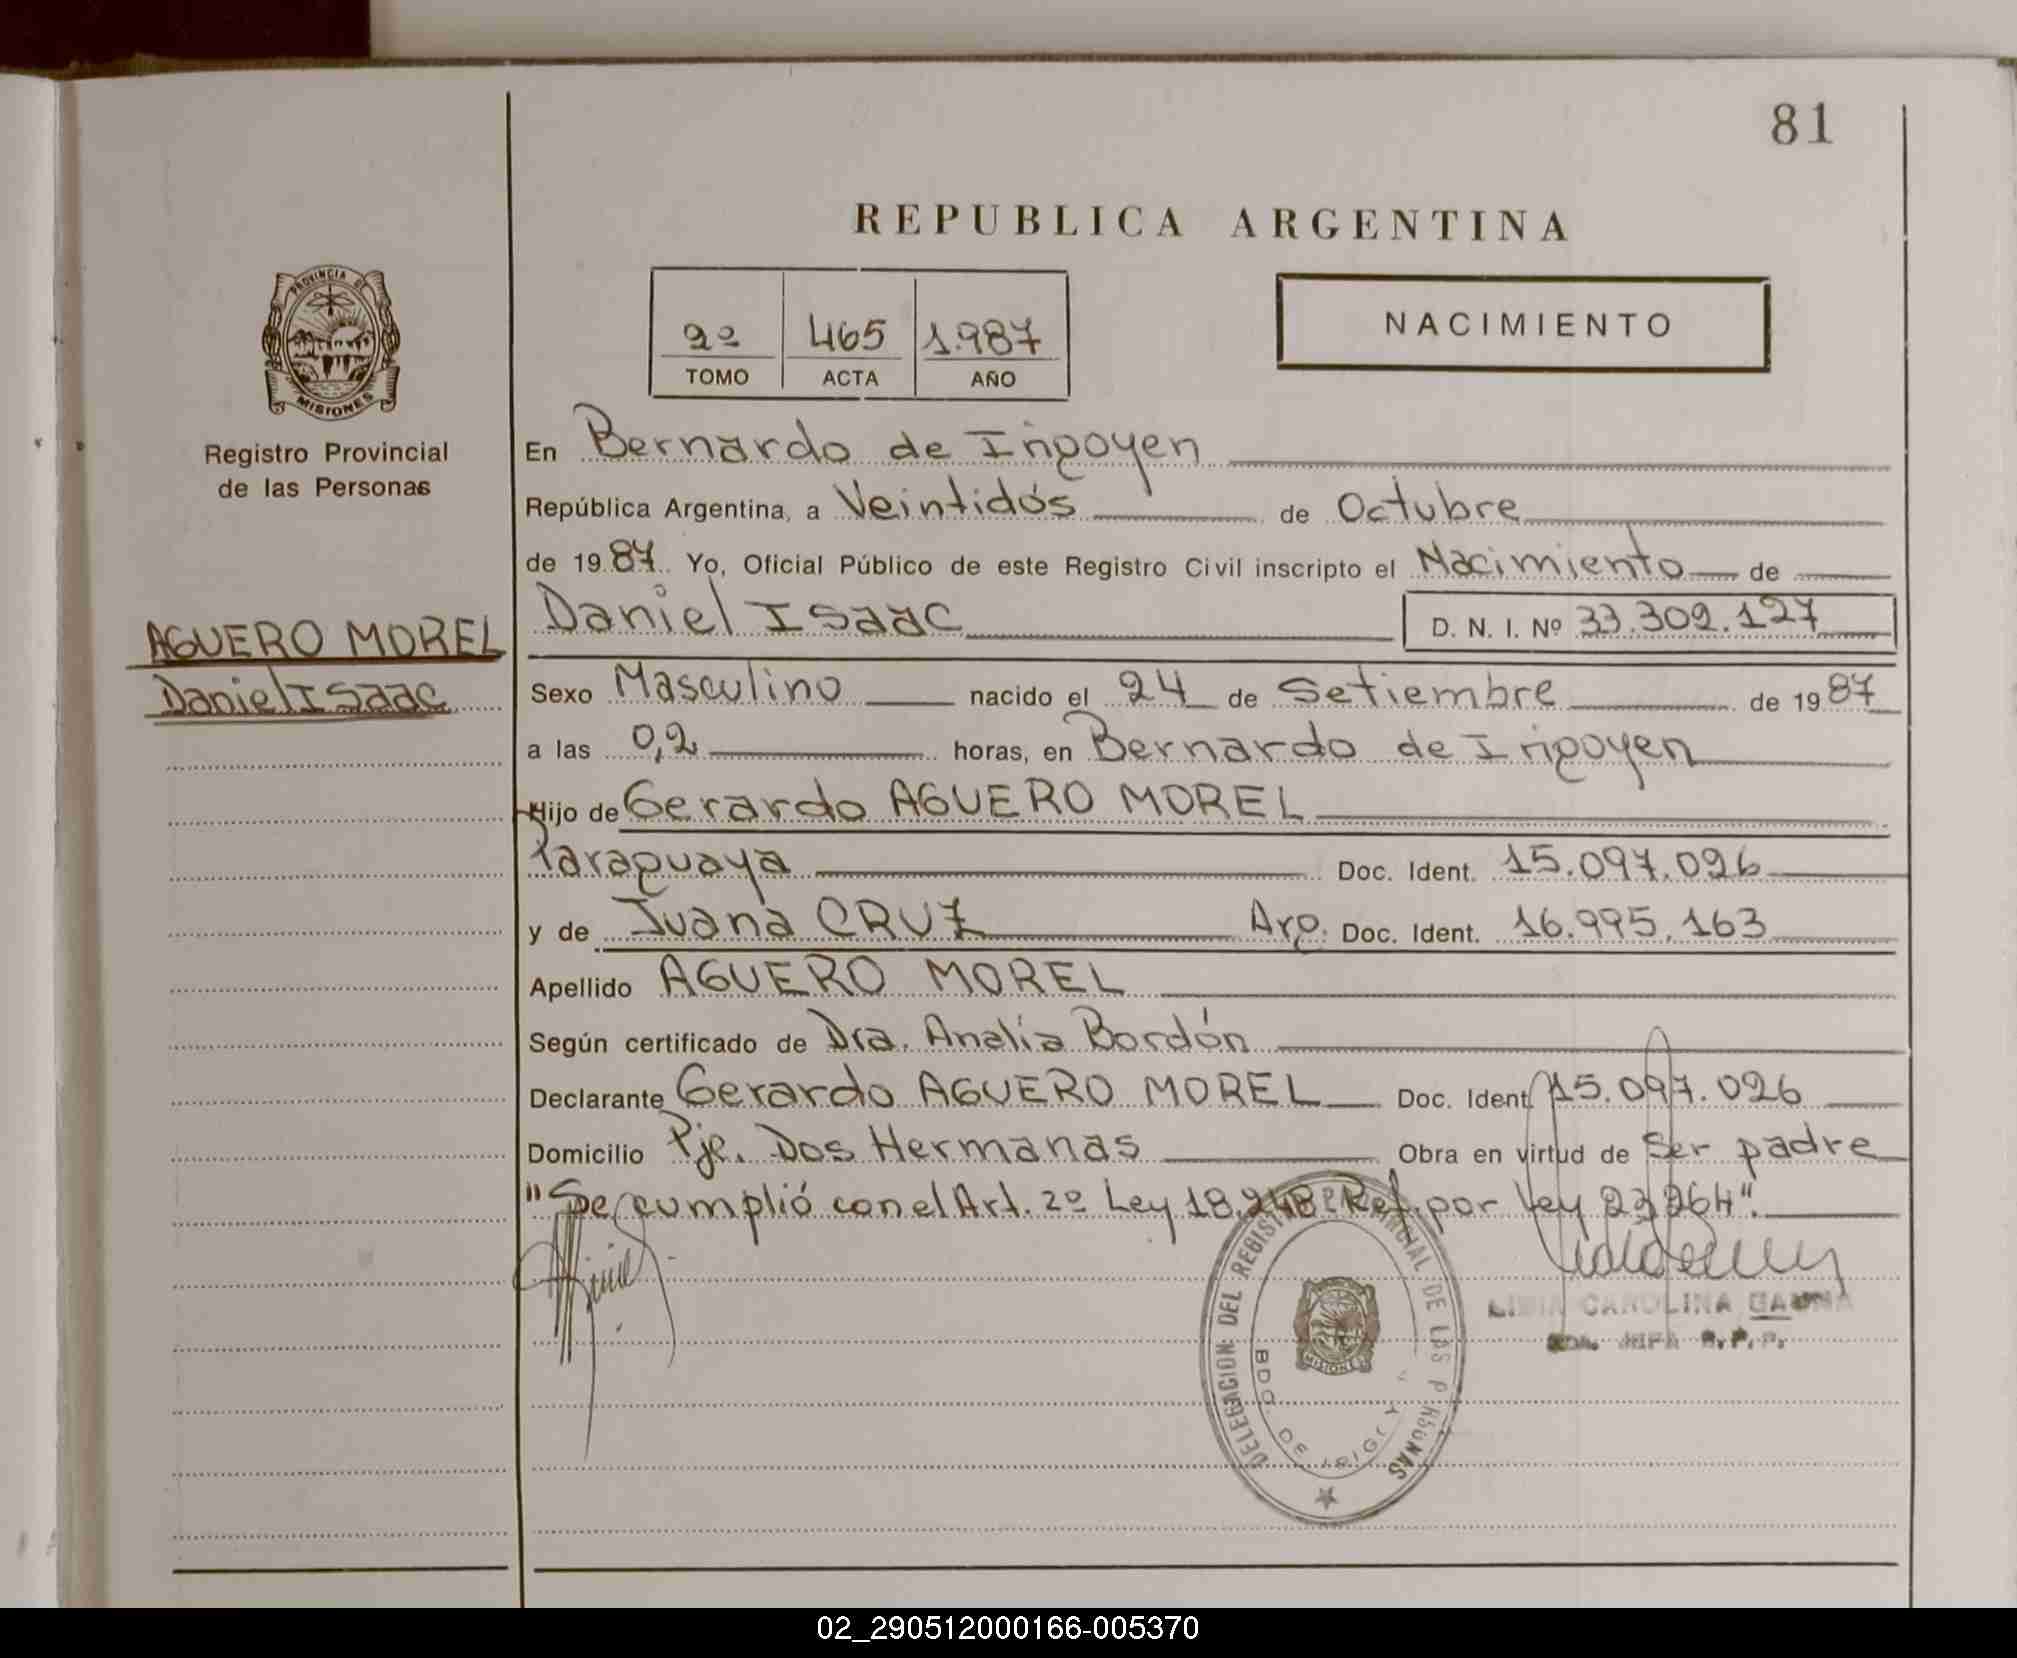 81
REPUBLICA ARGENTINA
PROVINCIA DE
MISIONES
Registro Provincial
de las Personas
2º 465 1.987
TOMO ACTA AÑO
NACIMIENTO
En Bernardo de Irigoyen
República Argentina, a Veintidós de Octubre
de 1987 Yo, Oficial Público de este Registro Civil inscripto el Nacimiento de
AGUERO MOREL
Daniel Isaac
Daniel Isaac D. N. I. Nº 33.309.127
Sexo Masculino nacido el 24 de Setiembre de 1987
a las 0,2 horas, en Bernardo de Irigoyen
Hijo de Gerardo AGUERO MOREL
Paraguaya Doc. Ident. 15.097.026
y de Juana CRUZ Arg. Doc. Ident. 16.995.163
Apellido AGUERO MOREL
Según certificado de Dra. Analía Bordón
Declarante Gerardo AGUERO MOREL Doc. Ident. 15.097.026
Domicilio Pje. Dos Hermanas Obra en virtud de Ser padre
"Se cumplió con el Art. 2º Ley 18.248 Ref. por Ley 23.264".
DELEGACION DEL REGISTRO PROVINCIAL DE LAS PERSONAS
BDO. DE IRIGOYEN
MISIONES
CAROLINA GAUNA
JEFA R.P.P.
02_290512000166-005370